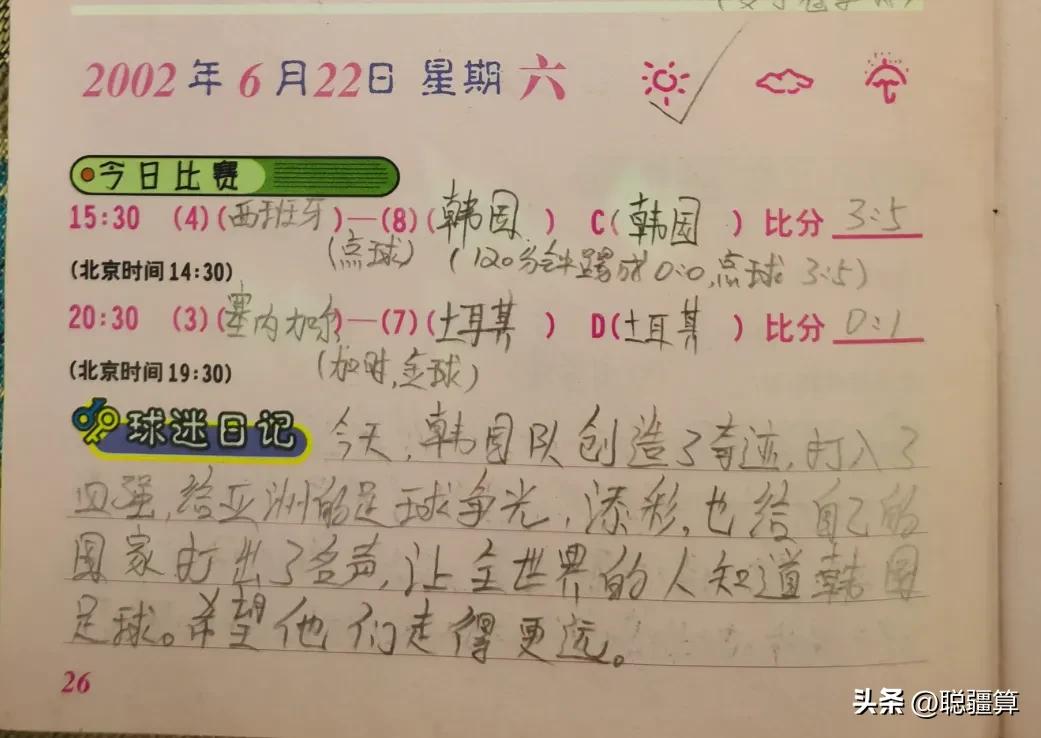 2002年6月22日 星期六
今日比赛
15:30 (4)(西班牙)—(8)(韩国) C(韩国) 比分 3:5
(点球) (120分钟踢成0:0,点球 3:5)
(北京时间14:30)
20:30 (3)(塞内加尔)—(7)(土耳其) D(土耳其) 比分 0:1
(加时,金球)
(北京时间19:30)
球迷日记 今天,韩国队创造了奇迹,打入了
四强,给亚洲的足球争光,添彩,也给自己的
国家打出了名声,让全世界的人知道韩国
足球。希望他们走得更远。
26
头条 @聪疆算